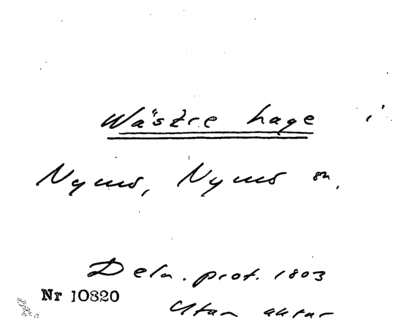 Wästre hage i
Nymö, Nymö sn.
Dela. prot. 1803
Nr 10820
Utan aktar